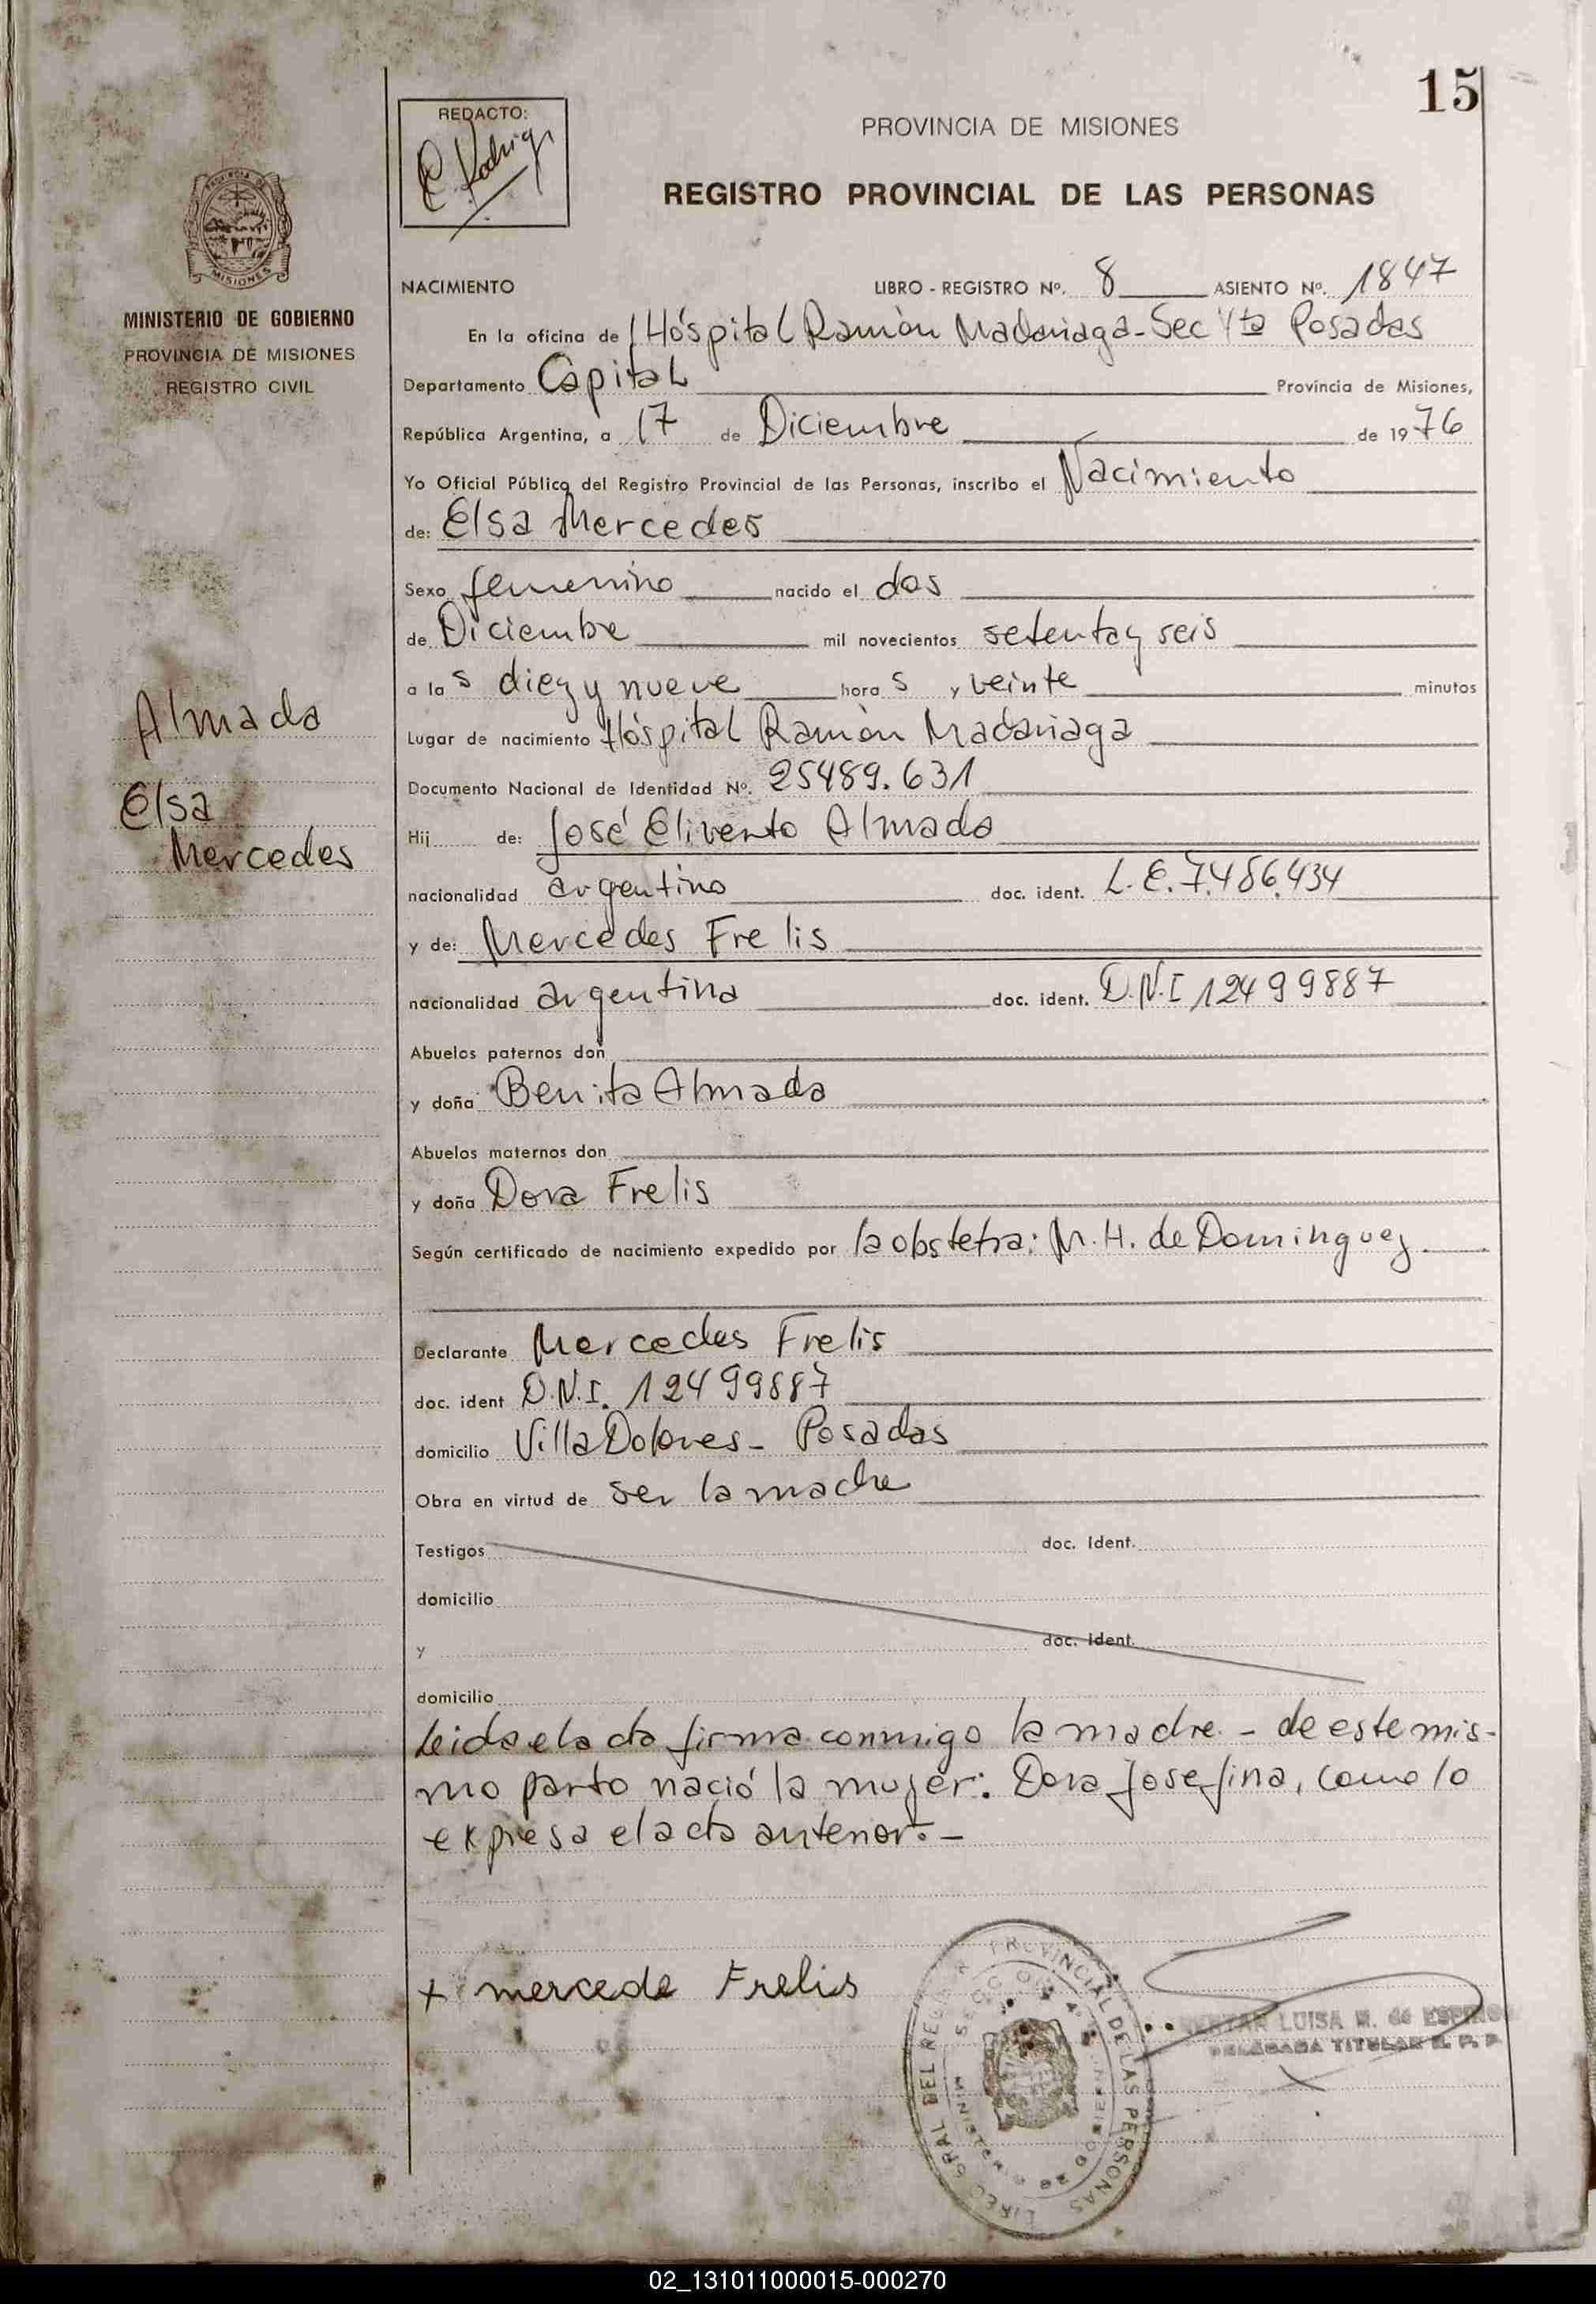 15
REDACTO:
PROVINCIA DE MISIONES
REGISTRO PROVINCIAL DE LAS PERSONAS
MISIONES
MINISTERIO DE GOBIERNO
PROVINCIA DE MISIONES
REGISTRO CIVIL
NACIMIENTO LIBRO - REGISTRO Nº. 8 ASIENTO Nº. 1847
En la oficina de Hóspital Ramòn Madariaga - Sec 4ta Posadas
Departamento Capital Provincia de Misiones,
República Argentina, a 17 de Diciembre de 1976
Yo Oficial Público del Registro Provincial de las Personas, inscribo el Nacimiento
de: Elsa Mercedes
Sexo femenino nacido el dos
de Diciembre mil novecientos setenta y seis
a las diez y nueve horas y veinte minutos
Almada
Lugar de nacimiento Hóspital Ramòn Madariaga
Documento Nacional de Identidad Nº. 25489.631
Elsa
Hij de: José Eliverto Almada
Mercedes
nacionalidad argentino doc. ident. L.E. 7.486.434
y de: Mercedes Frelis
nacionalidad argentina doc. ident. D.N.I 12499887
Abuelos paternos don
y doña Benita Almada
Abuelos maternos don
y doña Dora Frelis
Según certificado de nacimiento expedido por la obstetra: M. H. de Dominguez
Declarante Mercedes Frelis
doc. ident D.N.I. 12499887
domicilio Villa Dolores - Posadas
Obra en virtud de ser la madre
Testigos doc. Ident.
domicilio
y doc. Ident.
domicilio
Leida el acta firma conmigo la madre - de este mis-
mo parto nació la mujer: Dora Josefina, como lo
expresa el acta anterior. -
+ mercede Frelis
LUISA M. de
DELEGADA TITULAR R. P. P.
PROVINCIAL DE LAS PERSONAS
02_131011000015-000270